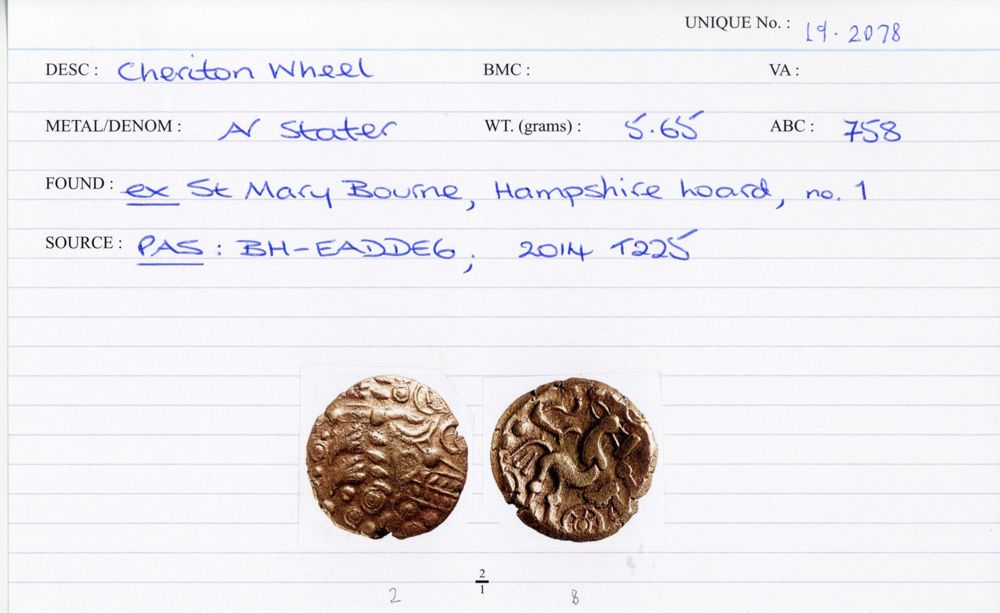 UNIQUE No. : 19.2078
DESC : Cheriton Wheel BMC : VA :
METAL/DENOM : AV Stater WT. (grams) : 5.65 ABC : 758
FOUND : ex St Mary Bourne, Hampshire hoard, no. 1
SOURCE : PAS : BH-EADDE6; 2014 T225
2
1
2 8